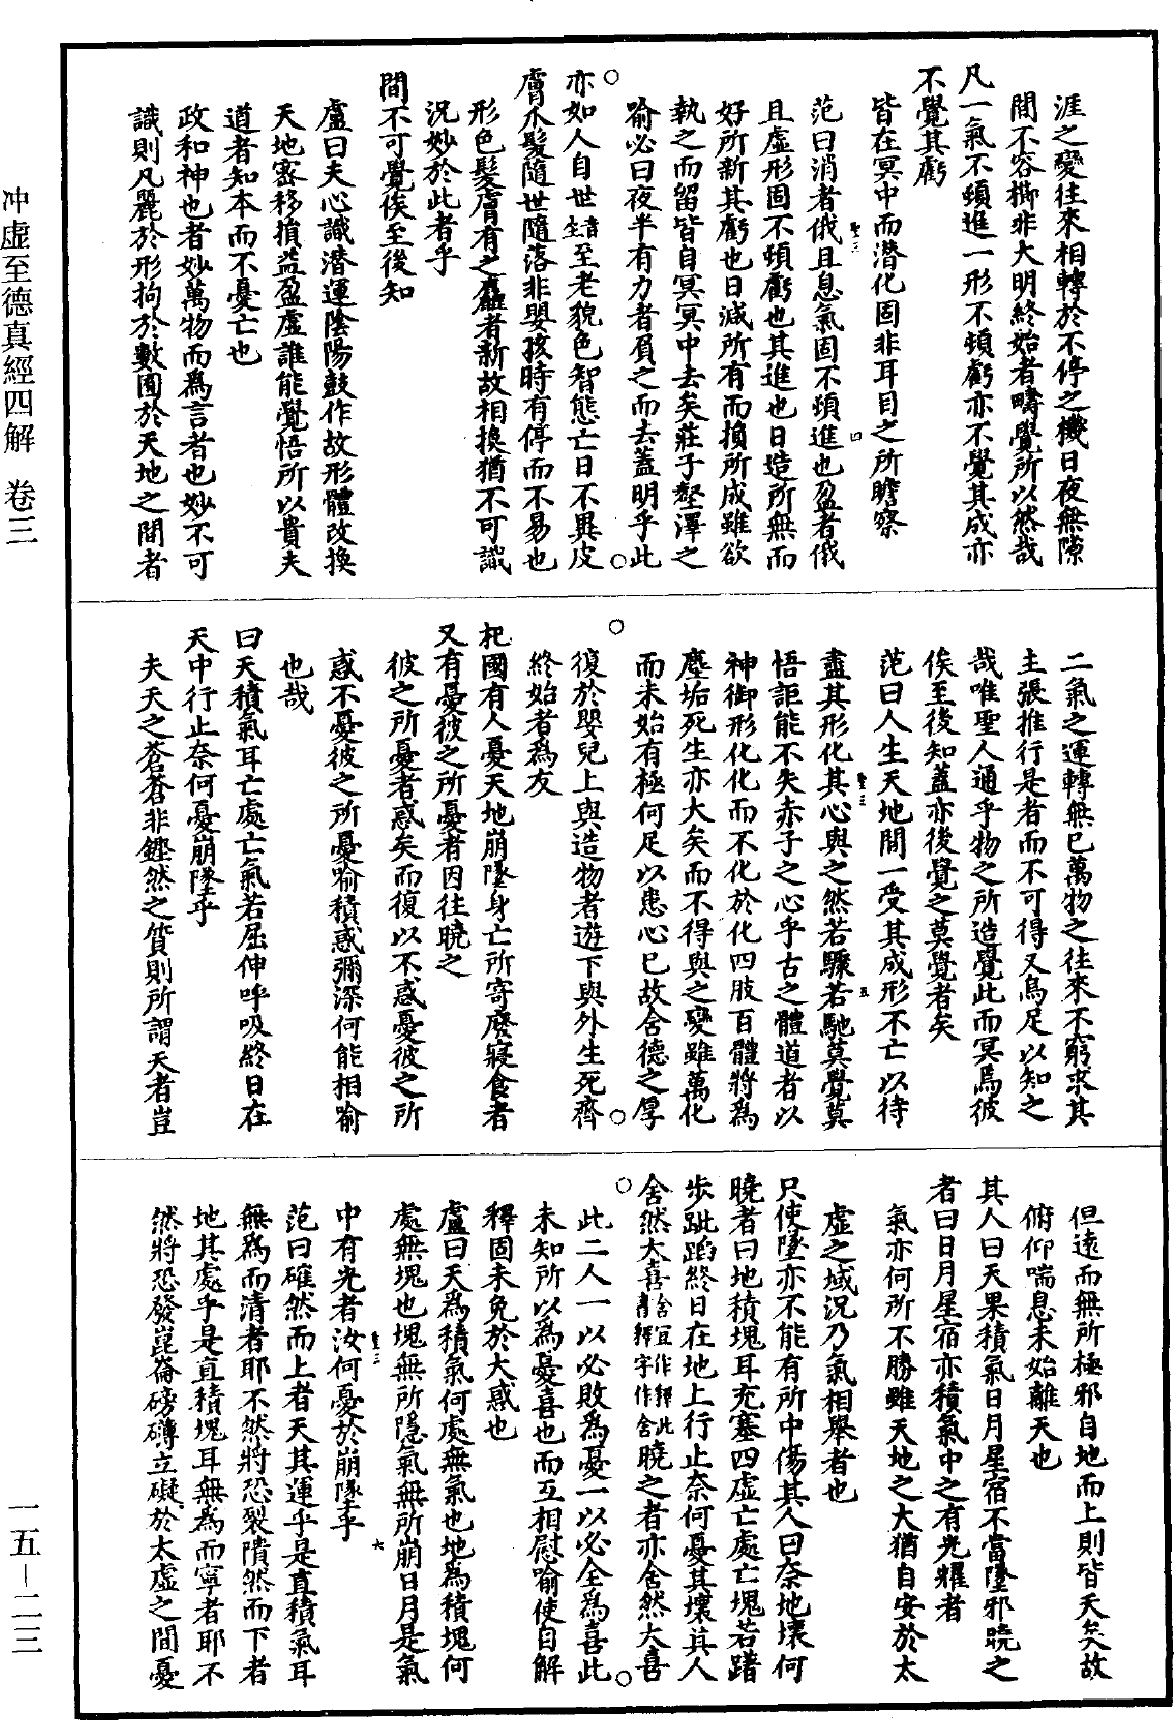 涯之變往來相轉於不停之機日夜無隙
間不容擲非大明終始者疇覺所以然哉
凡一氣不頓進一形不頓虧亦不覺其成亦
不覺其虧
皆在冥中而潛化固非耳目之所瞻察
范曰消者俄且息氣固不頓進也盈者俄
且虛形固不頓虧也其進也日造所無而
好所新其虧也日減所有而損所成雖欲
執之而留皆自冥冥中去矣莊子壑澤之
喻必曰夜半有力者肩之而去蓋明乎此
亦如人自世音生至老貌色智態亡日不異皮
膚爪髮隨世隨落非嬰孩時有停而不易也
形色髮膚有之麤者新故相換猶不可識
況妙於此者乎
間不可覺俟至後知
盧曰夫心識潛運陰陽鼓作故形體改換
天地密移損益盈虛誰能覺悟所以貴夫
道者知本而不憂亡也
政和神也者妙萬物而爲言者也妙不可
識則凡麗於形拘於數囿於天地之間者
二氣之運轉無已萬物之往來不窮求其
主張推行是者而不可得又烏足以知之
哉唯聖人通乎物之所造覺此而冥焉彼
俟至後知蓋亦後覺之莫覺者矣
范曰人生天地間一受其成形不亡以待
盡其形化其心與之然若驟若馳莫覺莫
悟詎能不失赤子之心乎古之體道者以
神御形化化而不化於化四肢百體將爲
塵垢死生亦大矣而不得與之變雖萬化
而未始有極何足以患心已故含德之厚
復於嬰兒上與造物者遊下與外生死齊
終始者爲友
杞國有人憂天地崩墜身亡所寄廢寢食者
又有憂彼之所憂者因往曉之
彼之所憂者惑矣而復以不惑憂彼之所
惑不憂彼之所憂喻積惑彌深何能相喻
也哉
曰天積氣耳亡處亡氣若屈伸呼吸終日在
天中行止奈何憂崩墜乎
夫天之蒼蒼非鏗然之質則所謂天者豈
但遠而無所極邪自地而上則皆天矣故
俯仰喘息未始離天也
其人曰天果積氣日月星宿不當墜邪曉之
者曰日月星宿亦積氣中之有光耀者
氣亦何所不勝雖天地之大猶自安於太
虛之域況乃氣相舉者也
只使墜亦不能有所中傷其人曰奈地壞何
曉者曰地積塊耳充塞四虛亡處亡塊若躇
步跐蹈終日在地上行止奈何憂其壞其人
舍然大喜舍宜作釋此書釋字作舍曉之者亦舍然大喜
此二人一以必敗爲憂一以必全爲喜此
未知所以爲憂喜也而互相慰喻使自解
釋固未免於大惑也
盧曰天爲積氣何處無氣也地爲積塊何
處無塊也塊無所隱氣無所崩日月是氣
中有光者汝何憂於崩墜乎
范曰確然而上者天其運乎是直積氣耳
無爲而清者耶不然將恐裂隤然而下者
地其處乎是直積塊耳無爲而寧者耶不
然將恐發崑崙磅礡立礙於太虛之間憂
冲虛至德真經四解 卷三
一五—二三